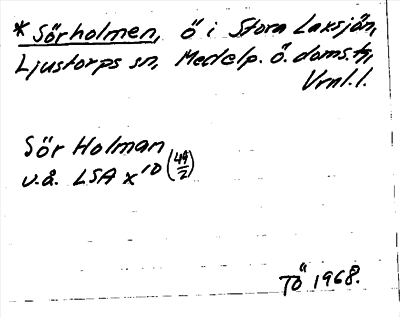 * Sörholmen, ö i Stora Laxsjön,
Ljustorps sn, Medelp. ö. doms.,
Vrnl.l.
Sör Holman
u.å. LSA X10 (49/2)
TÖ 1968.